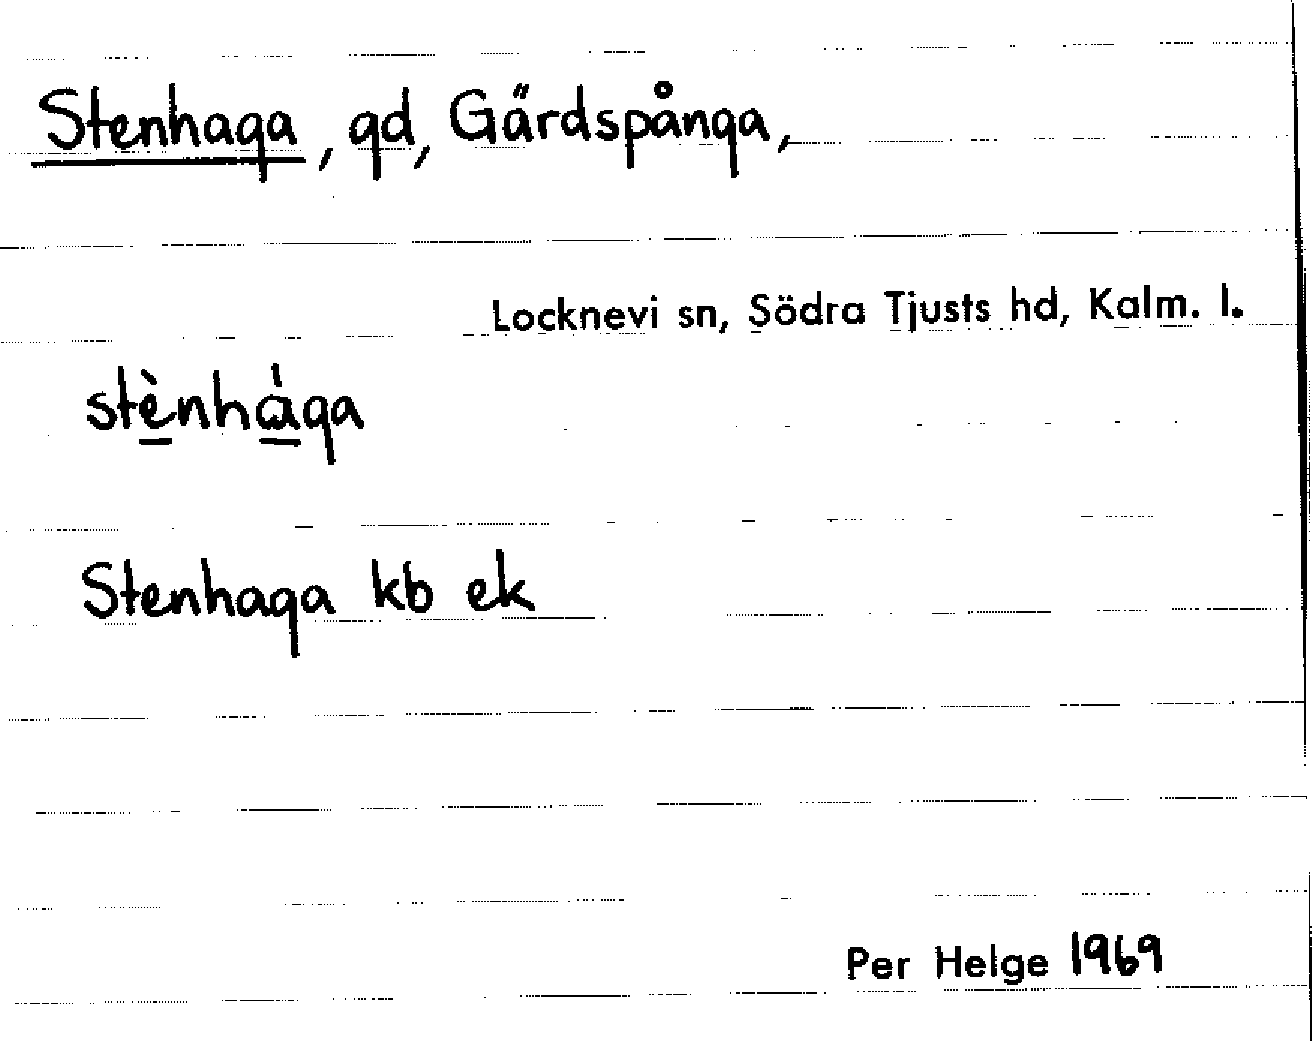 Stenhaga, gd, Gärdspånga,
Locknevi sn, Södra Tjusts hd, Kalm. l.
stènhàga
Stenhaga kb ek
Per Helge 1969